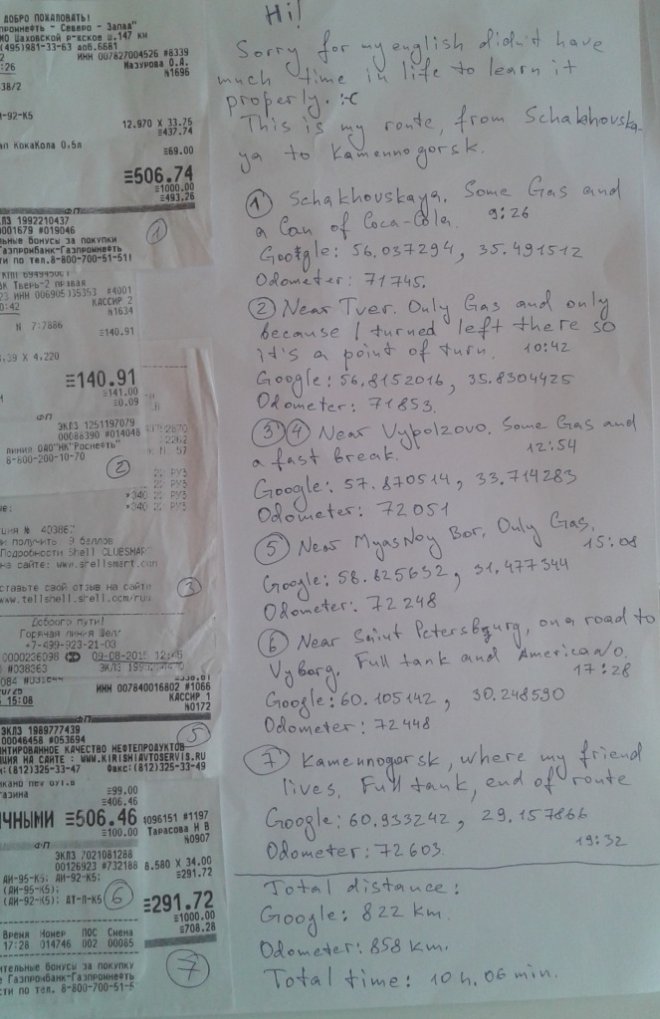 ДОБРО ПОЖАЛОВАТЬ!
- Северо - Запад"
МО Шаховской р- ш.147 км
(495)981-33-63 доб.6681
ИНН 007827004526 #8339
:26
Мазурова О.А.
N1696
38/2
И-92-К5
12.970 X 33.75
≡437.74
КокаКола 0,5л
≡69.00
≡506.74
≡1000.00
≡493.26
ФП
ЭКЛЗ 1992210437
0001679 #019046
бонусы за покупки
Газпромбанк-Газпромнефть
по тел.8-800-700-51-51!
1
Тверь-2 правая
ИНН 006905135353 #4001
0:42
КАССИР 2
N1634
N 7:7886
≡140.91
.39 X 4.220
≡140.91
≡141.00
≡0.09
ФП
ЭКЛЗ 1251197079
00086390 #014048
линия ОАО"НК"Роснефть"
8-800-200-10-70
2
≡340
≡340
№ 403862
получить 9 баллов
Подробности Shell CLUBSMART
на сайте: www.shellsmart.com
оставьте свой отзыв на сайте
www.tellshell.shell.com/rus
3
Доброго пути!
Горячая линия Шелл
+7-499-923-21-03
0000236098
09-08-2015 12:46
#038863
ЭКЛЗ
15:08
ИНН 007840016802 #1066
КАССИР 1
N0172
ФП
ЭКЛЗ 1989777439
00046458 #053694
КАЧЕСТВО НЕФТЕПРОДУКТОВ
НА САЙТЕ : WWW.KIRISHIAVTOSERVIS.RU
(812)325-33-47 Факс:(812)325-33-49
5
≡99.00
≡406.46
≡506.46
≡100.00
ФП
ЭКЛЗ 7021081268
00126923 #732188
АИ-95-К5; АИ-92-К5;
(АИ-95-К5);
(АИ-92-К5); ДТ-Л-К5
6
Время Номер ПОС Смена
17:28 014746 002 00085
#1197
Тарасова Н В
N0907
8.580 X 34.00
≡291.72
≡291.72
≡1000.00
≡708.28
бонусы за покупку
Газпромбанк-Газпромнефть
по тел. 8-800-700-51-5
7
Hi!
Sorry for my english didn't have
much time in life to learn it
properly. :-(
This is my route, from Schakhovska-
ya to Kamennogorsk.
1 Schakhovskaya. Some Gas and
a Can of Coca-Cola. 9:26
Google: 56.037294, 35.491512
Odometer: 71745.
2 Near Tver. Only Gas and only
because I turned left there so
it's a point of turn. 10:42
Google: 56.8152016, 35.8304425
Odometer: 71853.
3 4 Near Vypolzovo. Some Gas and
a fast break. 12:54
Google: 57.870514, 33.714283
Odometer: 72051
5 Near Myasnoy Bor. Only Gas.
15:08
Google: 58.825632, 31.477344
Odometer: 72248
6 Near Saint Petersburg, on a road to
Vyborg. Full tank and Americano.
17:28
Google: 60.105142, 30.248590
Odometer: 72448
7 Kamennogorsk, where my friend
lives. Full tank, end of route
Google: 60.933242, 29.157866
Odometer: 72603. 19:32
Total distance:
Google: 822 km.
Odometer: 858 km.
Total time: 10 h. 06 min.